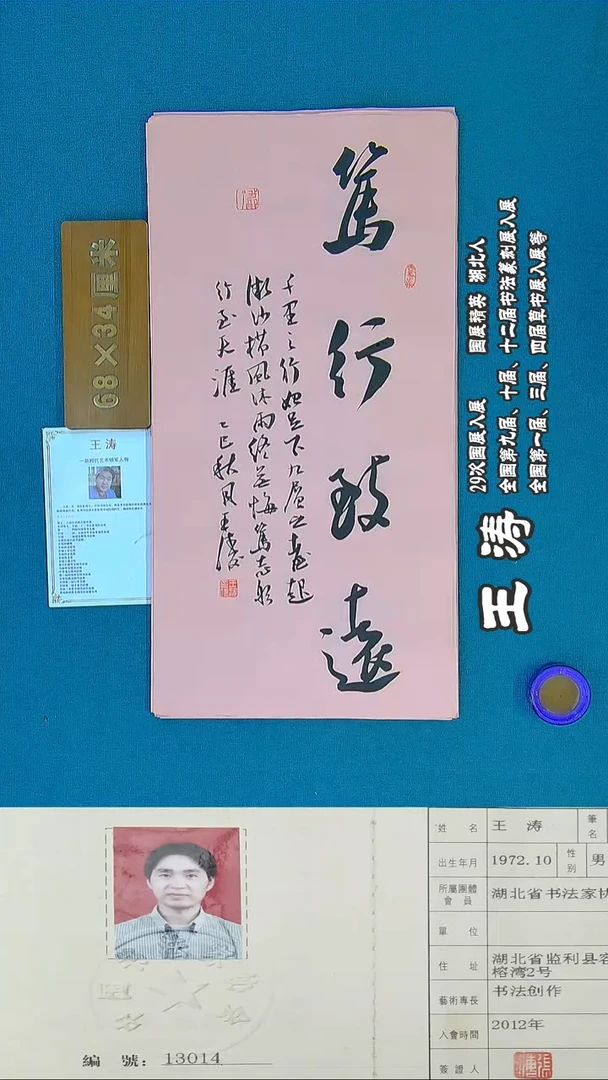 篤行致遠
千里之行始足下九層之臺起
微沙櫛風沐雨終無悔篤志前
行至天涯 乙巳秋月王濤
68×34厘米
王涛
29次国展入展 国展精英 湖北人
全国第九届、十届、十二届书法篆刻展入展
全国第一届、三届、四届草书展入展等
王 涛
編 號：13014
姓 名 王 涛 筆名
出生年月 1972.10 性别 男
所屬團體會員 湖北省书法家协
單 位
住 址 湖北省监利县容
榕湾2号
藝術專長 书法创作
入會時間 2012年
簽證人